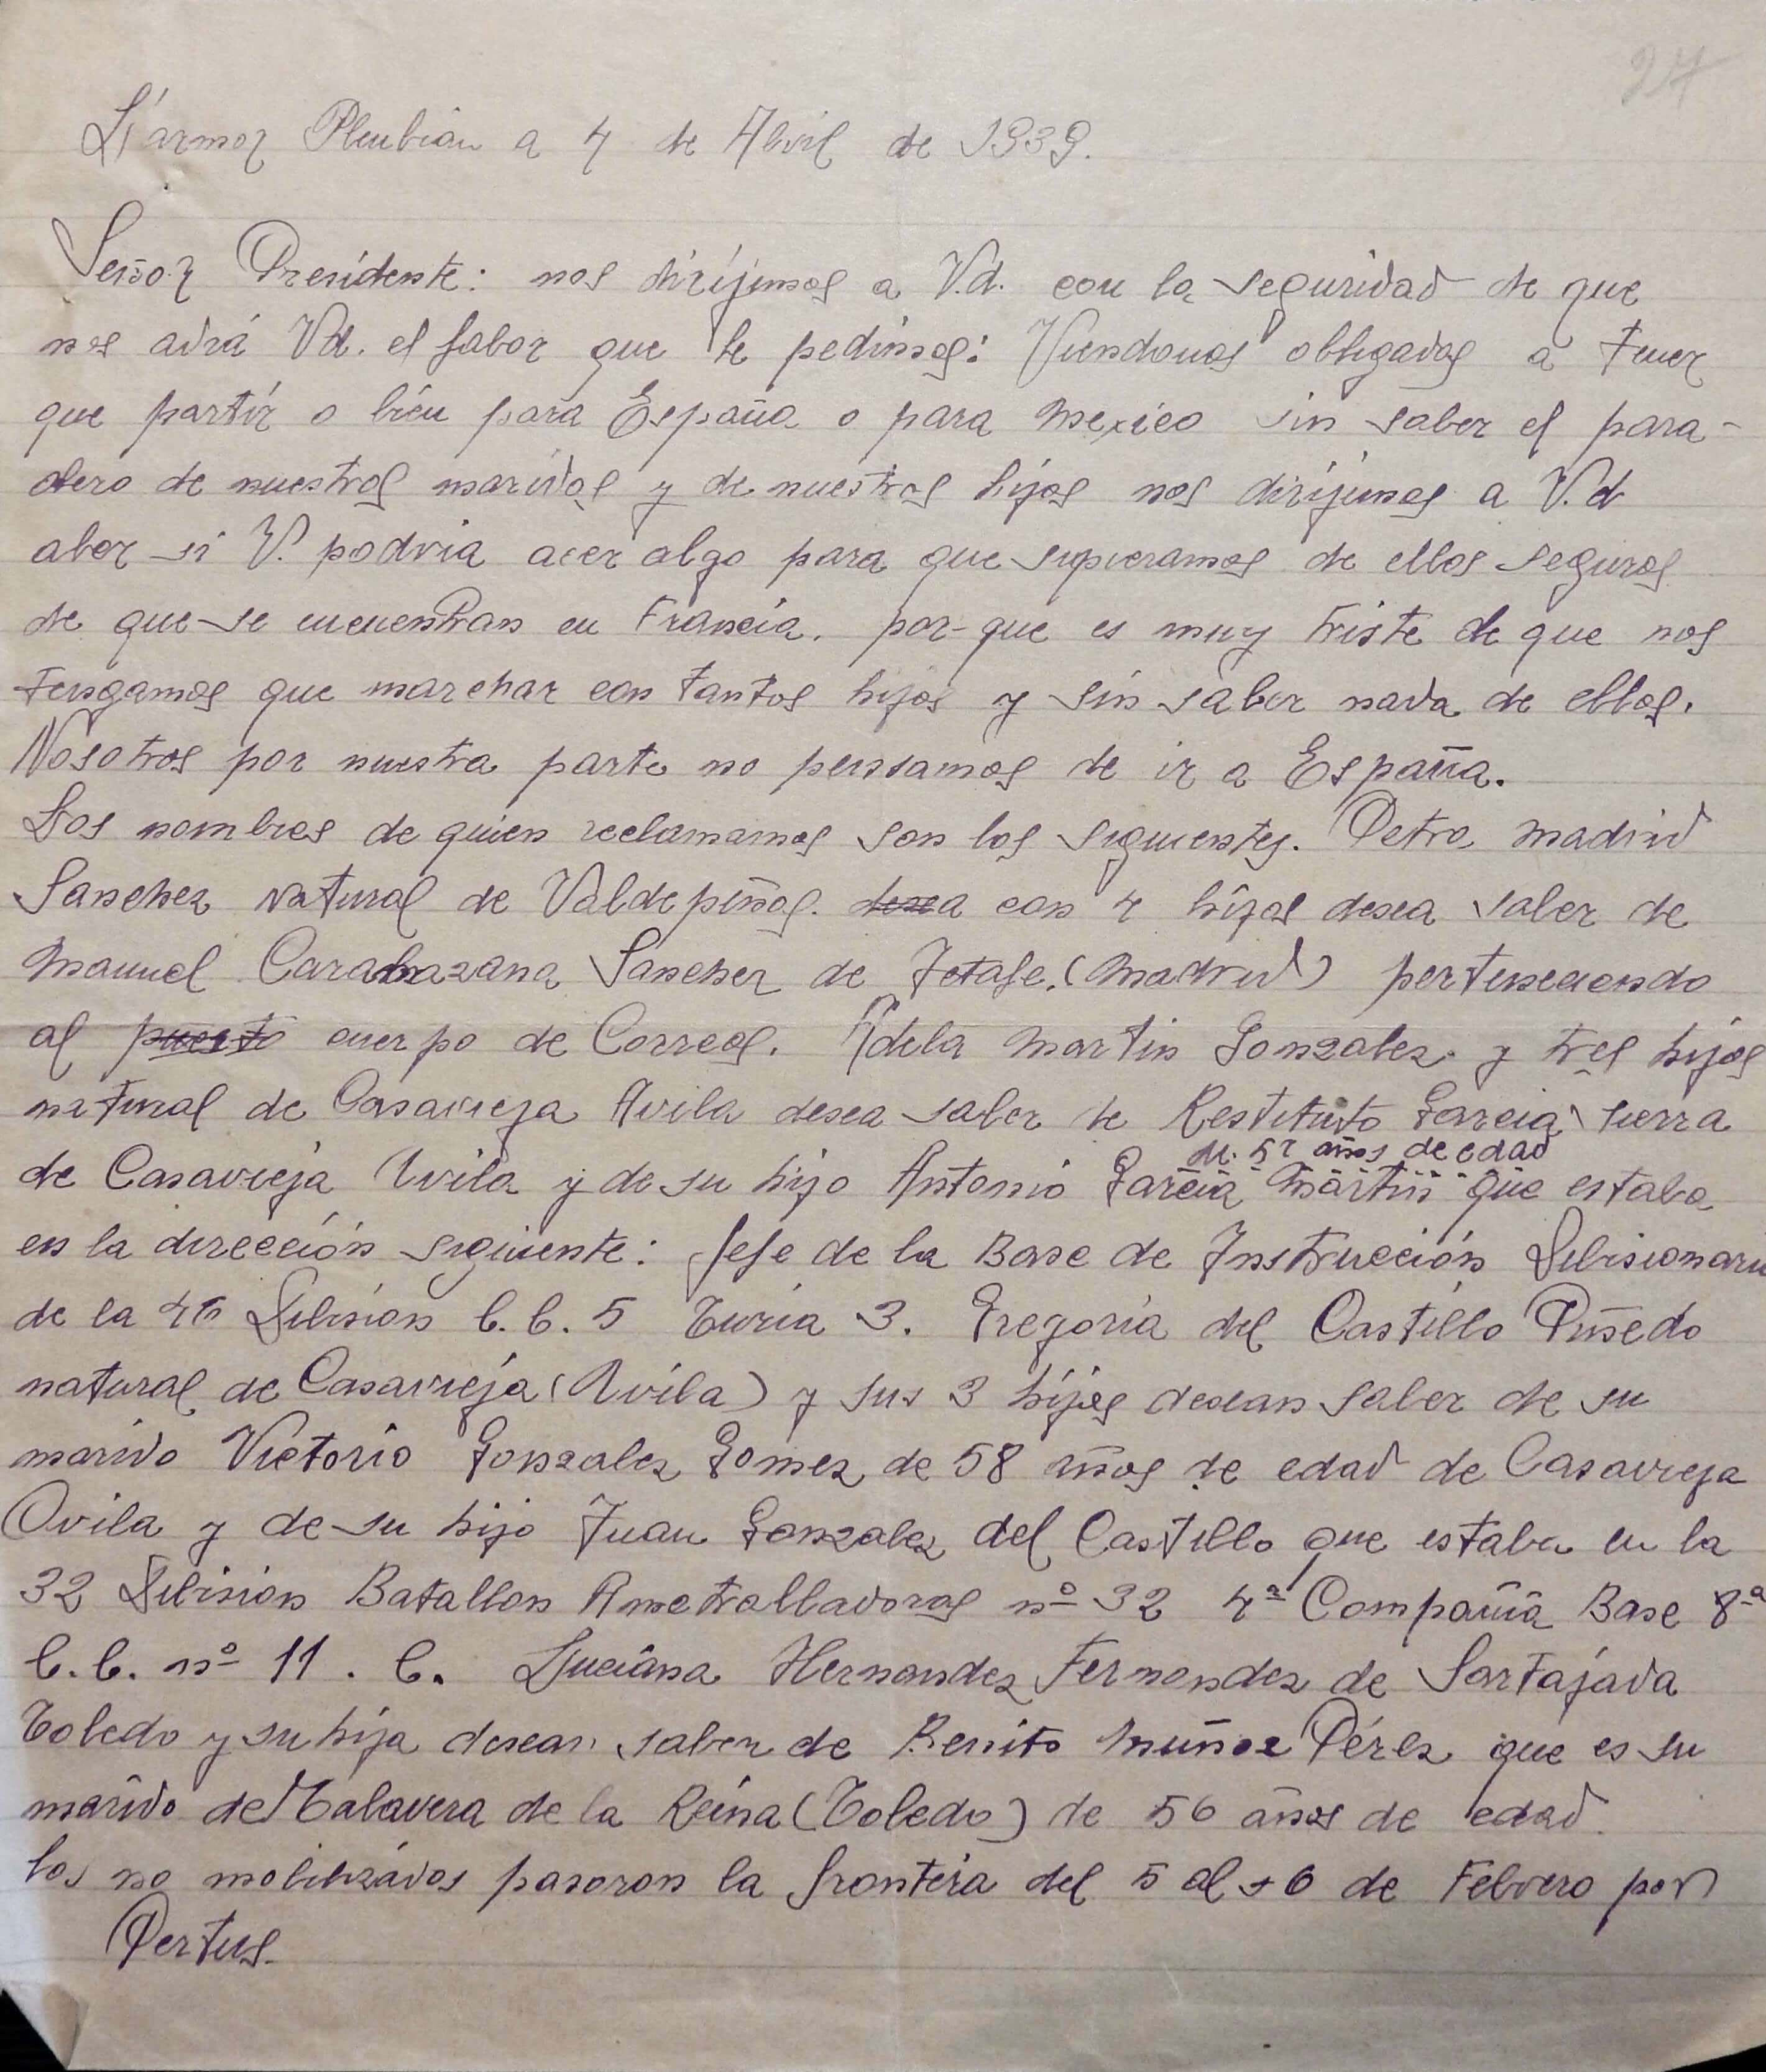 27
L'armor Pleubian a 4 de Abril de 1939.
Señor Presidente: nos dirijimos a V.d. con la seguridad de que
nos adrá Vd. el fabor que le pedimos: Viendonos obligados a tener
que partir o bien para España o para Mexico sin saber el para-
dero de nuestros maridos y de nuestros hijos nos dirijimos a V.d
aber si V. podria acer algo para que supieramos de ellos seguros
de que se encuentran en Francia. por-que es muy triste de que nos
tengamos que marchar con tantos hijos y sin saber nada de ellos.
Nosotros por nuestra parte no pensamos de ir a España.
Los nombres de quien reclamamos son los siguientes. Petra Madrid
Sanchez natural de Valdepeñas. desea con 4 hijos desea saber de
Manuel Carabazana Sanchez de Jetafe. (Madrid) perteneciendo
al puesto cuerpo de Correos. Adela Martin Gonzalez y tres hijos
natural de Casavieja Avila desea saber de Restituto Garcia Sierra
de 57 años de edad
de Casavieja Avila y de su hijo Antonio Garcia Martin que estaba
en la dirección siguiente: Jefe de la Base de Instrucción Dibisionaria
de la 46 Dibision C.C. 5 Turia 3. Gregoria del Castillo Piñedo
natural de Casavieja (Avila) y sus 3 hijos desean saber de su
marido Victorio Gonzalez Gomez de 58 años de edad de Casavieja
Avila y de su hijo Juan Gonzalez del Castillo que estaba en la
32 Dibision Batallon Ametralladoras nº 32 4ª Compañia Base 8ª
C.C. nº 11. C. Luciana Hernandez Fernandez de Sartajada
Toledo y su hija desean saber de Benito Muñoz Pérez que es su
marido de Talavera de la Reina (Toledo) de 56 años de edad.
los no mobilizados pasaron la frontera del 5 al 6 de Febrero por
Pertus.